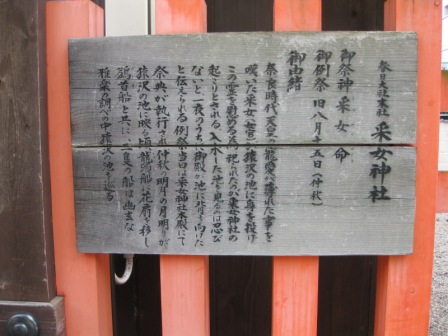 春日大社末社 采女神社
御祭神 采女命
御例祭 旧八月十五日(仲秋)
御由緒
奈良時代、天皇の寵愛が薄れた事を
嘆いた采女(女官)が猿沢の池に身を投げ
この霊を慰める為に祀られたのが采女神社の
起こりとされる。入水した池を見るのは忍び
ないと一夜のうちに御殿が池に背を向けた
と伝えられる。例祭当日は采女神社本殿にて
祭典が執行され、仲秋の明月の月明りが
猿沢の池に映る頃龍頭船に花扇を移し
鷁首船と共に、二隻の船は幽玄な
雅楽の調べの中猿沢の池を巡る